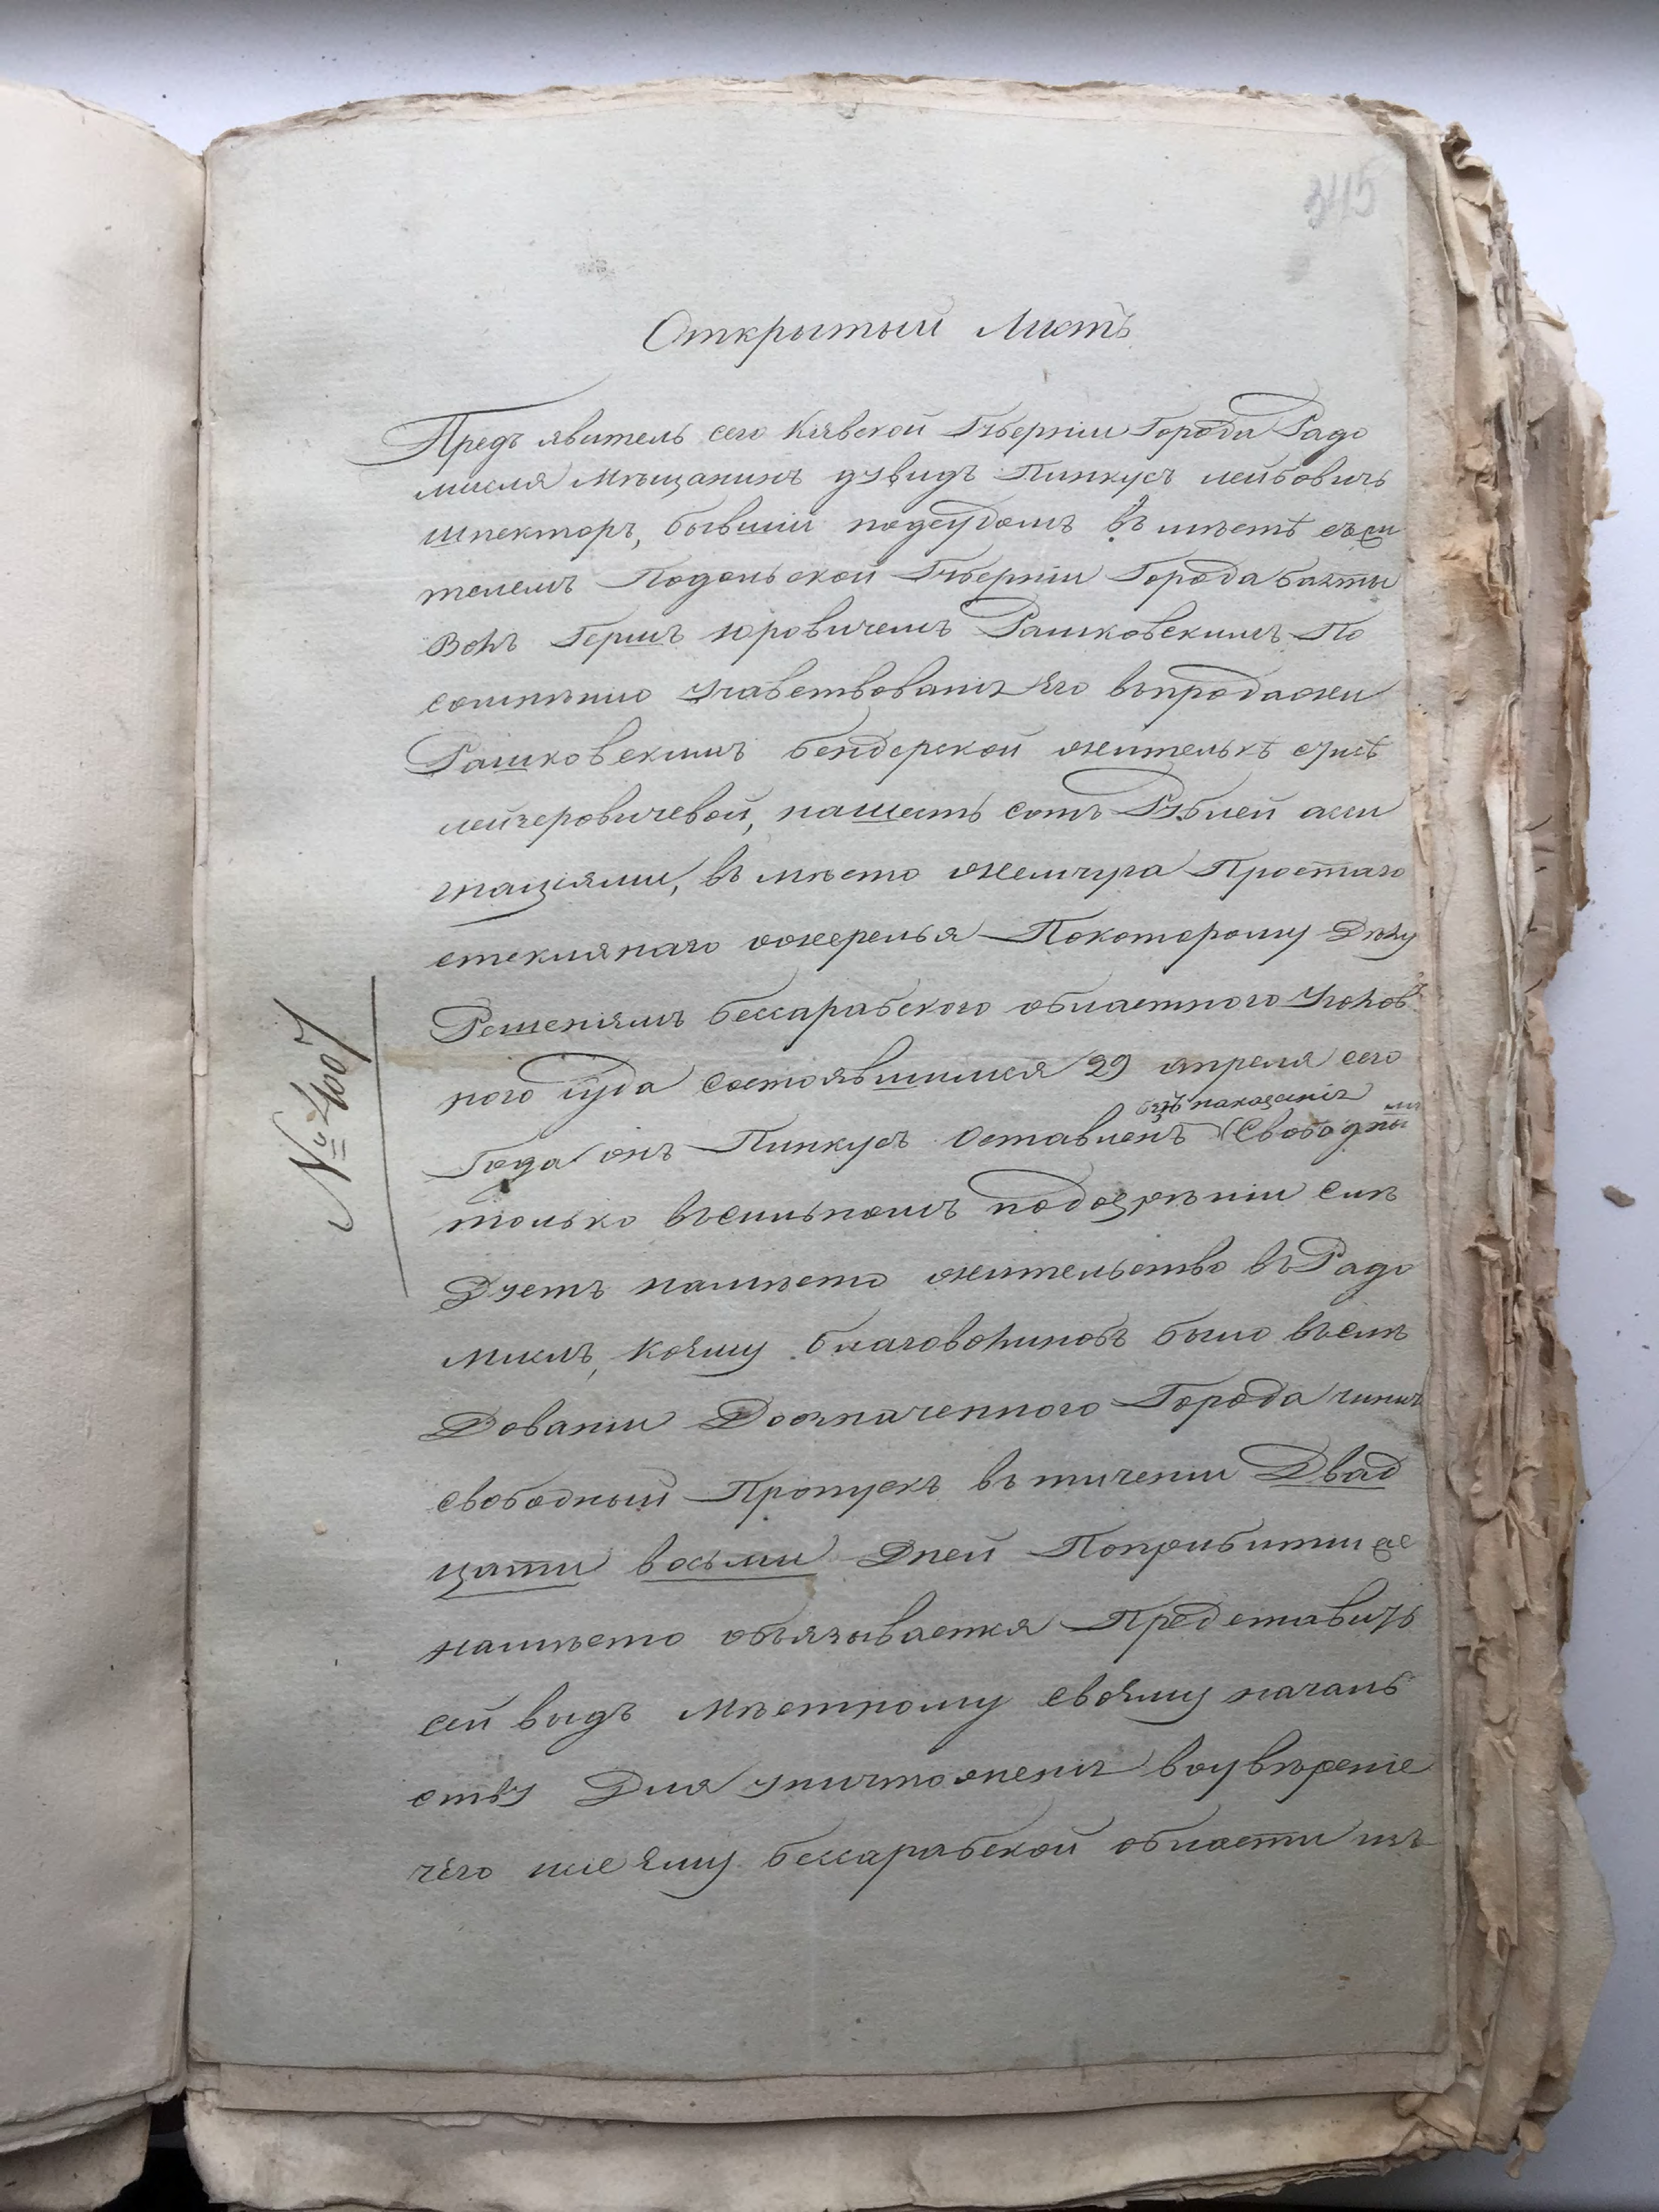 345
Открытый Листъ
Предъ явитель сего Киевской Губерніи Города Радо
мисля Мѣщанинъ Дувидъ Пинкусъ лейбовичъ
шпекторъ, бывшій подсудомъ въ мѣстѣ съжи
телемъ Подольской Губерніи Города балты
Вольъ Гершъ юровичемъ Рашковскимъ По
сомнѣнію участвованія Его впродажи
Рашковскимъ бендерской жителькѣ сусѣ
лейзеровичевой, нашесть сотъ Рублей асси
гнаціями, въ мѣсто жемчуга Простаго
стекляннаго ожерелья Покоторому Дѣлу
Решеніямъ бессарабского областного Уголов
ного Суда состоявшимся 29 апреля сего
безъ наказанія
Года онъ Пинкусъ оставленъ Свободнымъ
только всильномъ подозрѣніи слѣ
Дуетъ намѣсто жительство въ Радо
мисль, коему благоволилобъ было вслѣ
Дованіи Доозначенного Города чинить
свободный Пропускъ въ тичении Двад
цати восьми Дней Поприбитии же
намѣсто обязывается Представить
сей видъ Мѣстному своему началь
ству Для уничтоженія воувѣреніе
чего и ему бессарабской области изъ
№ 4007